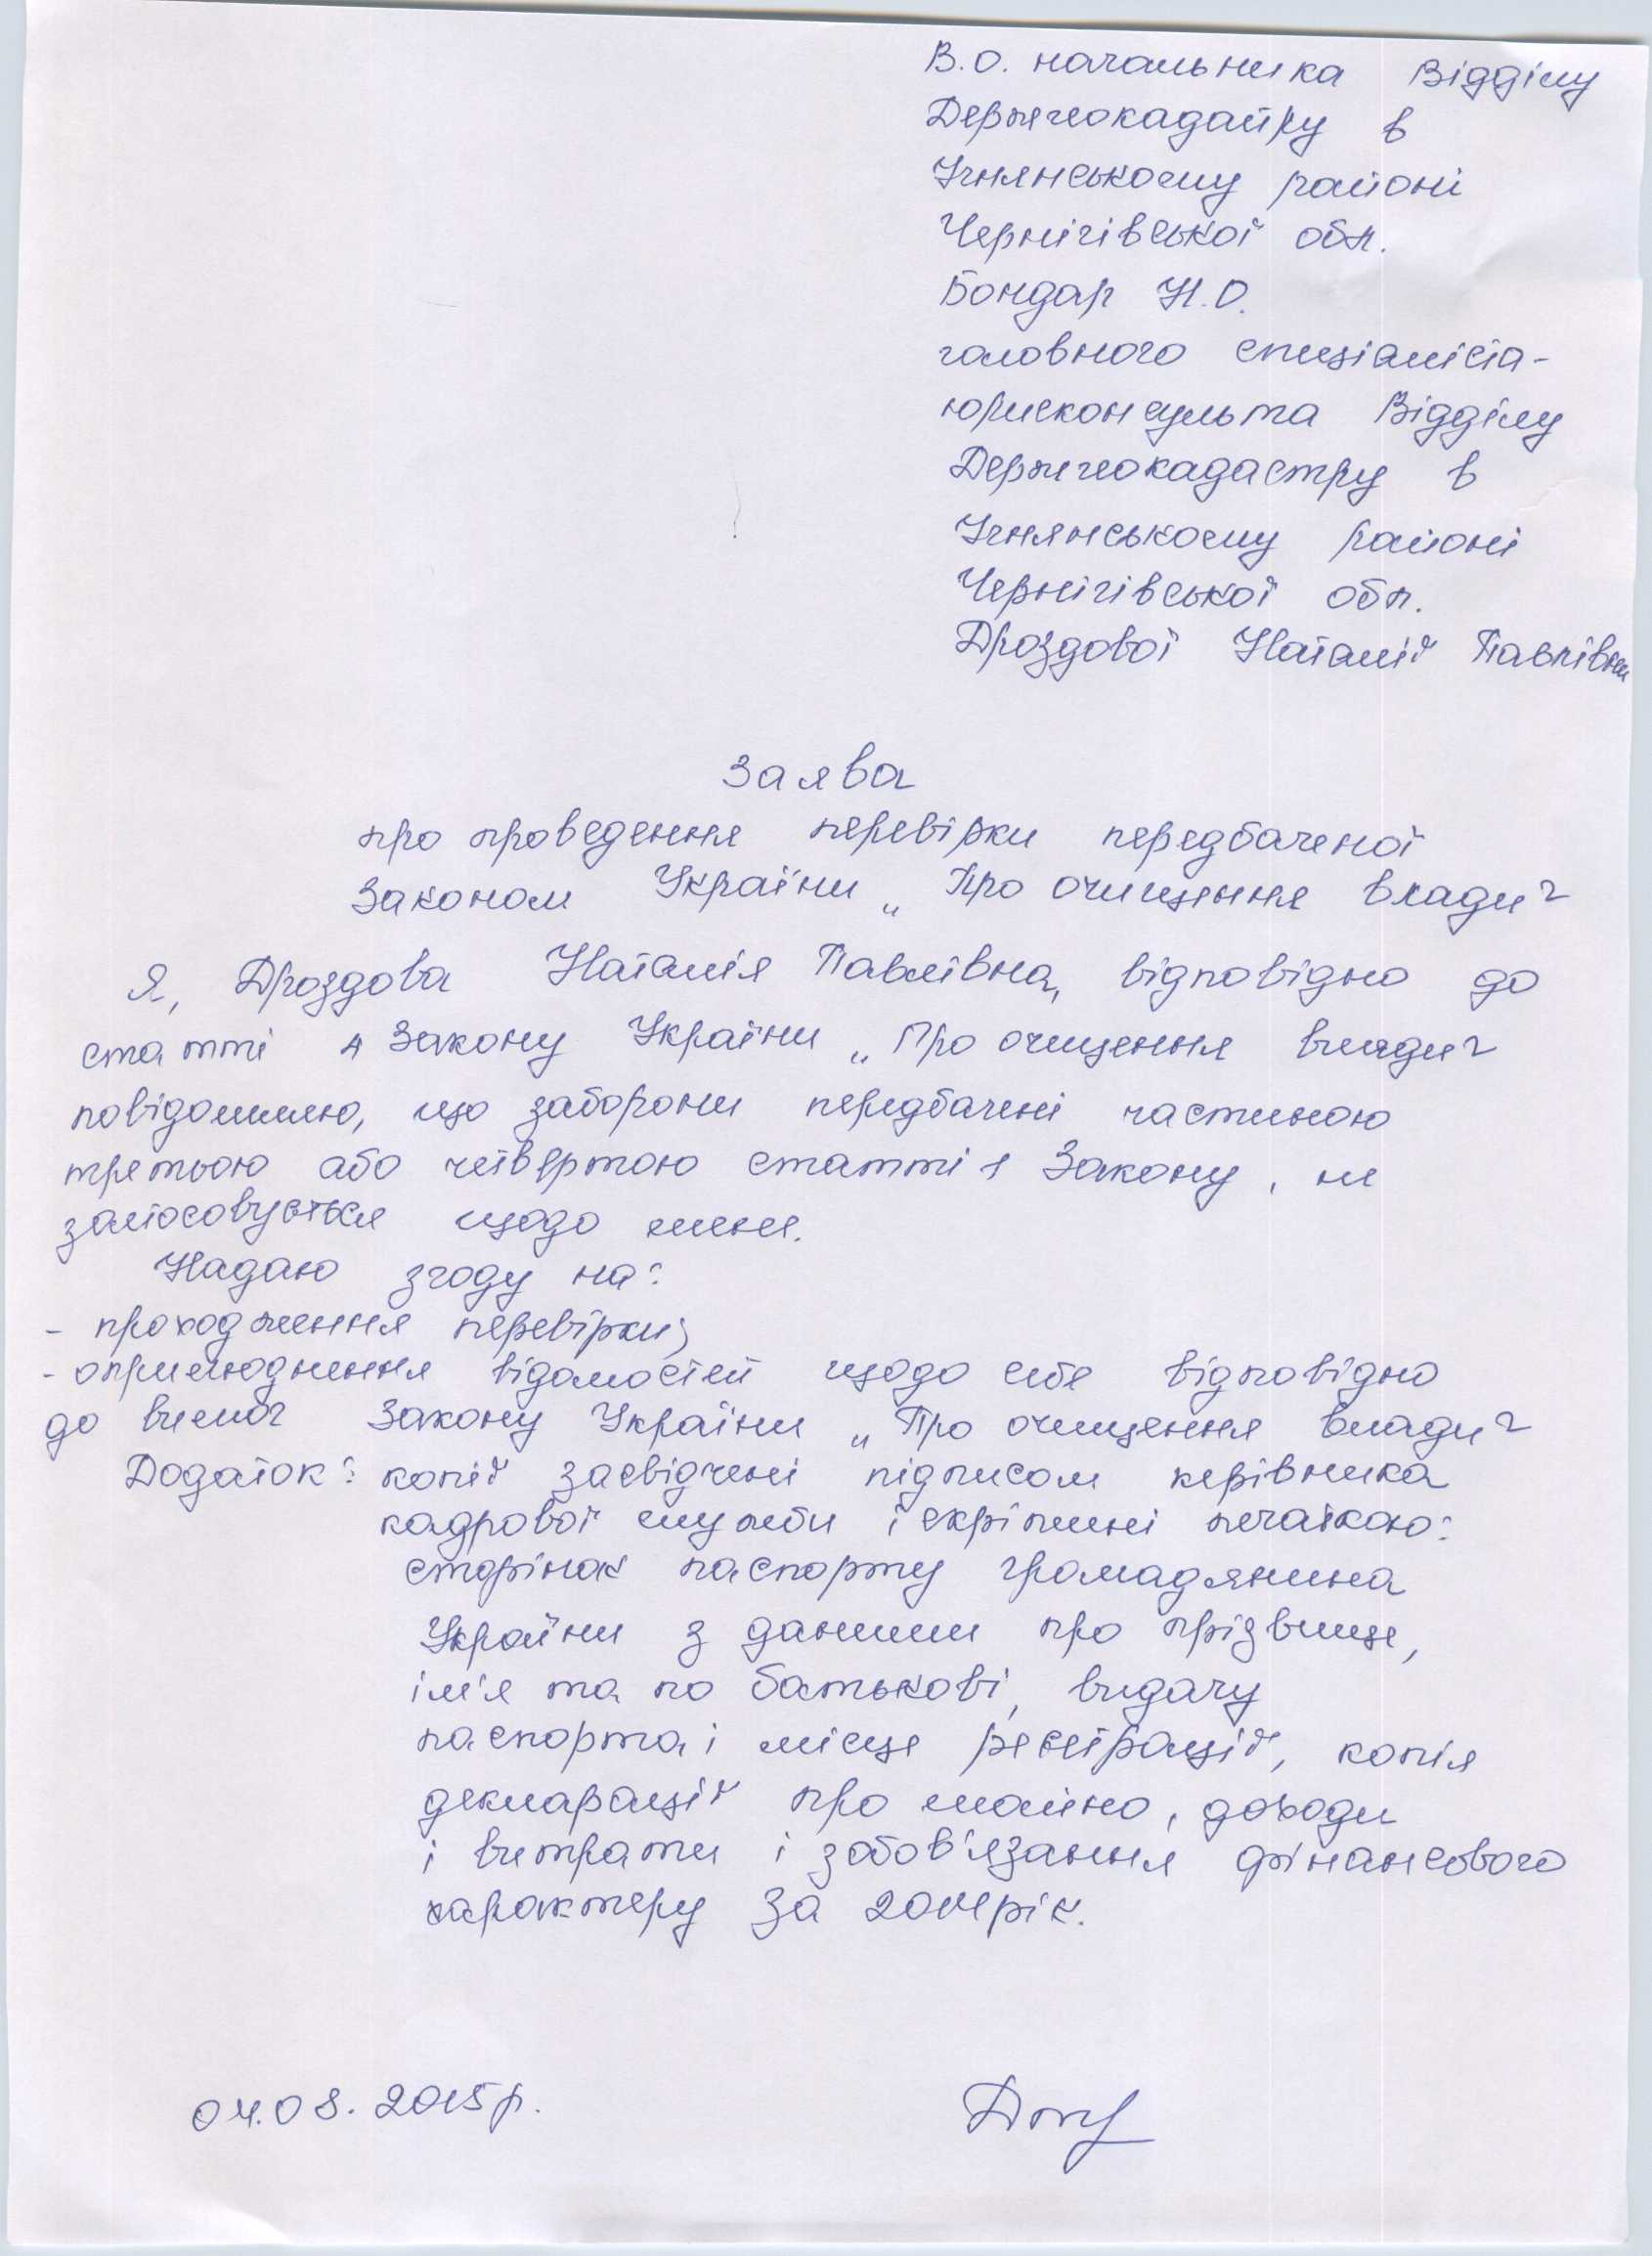 В.О. начальника Відділу
Держгеокадастру в
Ічнянському районі
Чернігівської обл.
Бондар Н.О.
головного спеціаліста-
юрисконсульта Відділу
Держгеокадастру в
Ічнянському районі
Чернігівської обл.
Дроздової Наталії Павлівни
Заява
про проведення перевірки передбаченої
Законом України „Про очищення влади"
Я, Дроздова Наталія Павлівна, відповідно до
статті 4 Закону України „Про очищення влади"
повідомляю, що заборони передбачені частиною
третьою або четвертою статті 1 Закону, не
застосовується щодо мене.
Надаю згоду на:
- проходження перевірки;
- оприлюднення відомостей щодо себе відповідно
до вимог Закону України „Про очищення влади"
Додаток: копії засвідчені підписом керівника
кадрової служби і скріплені печаткою:
сторінок паспорту громадянина
України з даними про прізвище,
ім'я та по батькові, видачу
паспорта і місце реєстрації, копія
декларації про майно, доходи
і витрати і зобов'язання фінансового
характеру за 2014рік.
04.08.2015р.